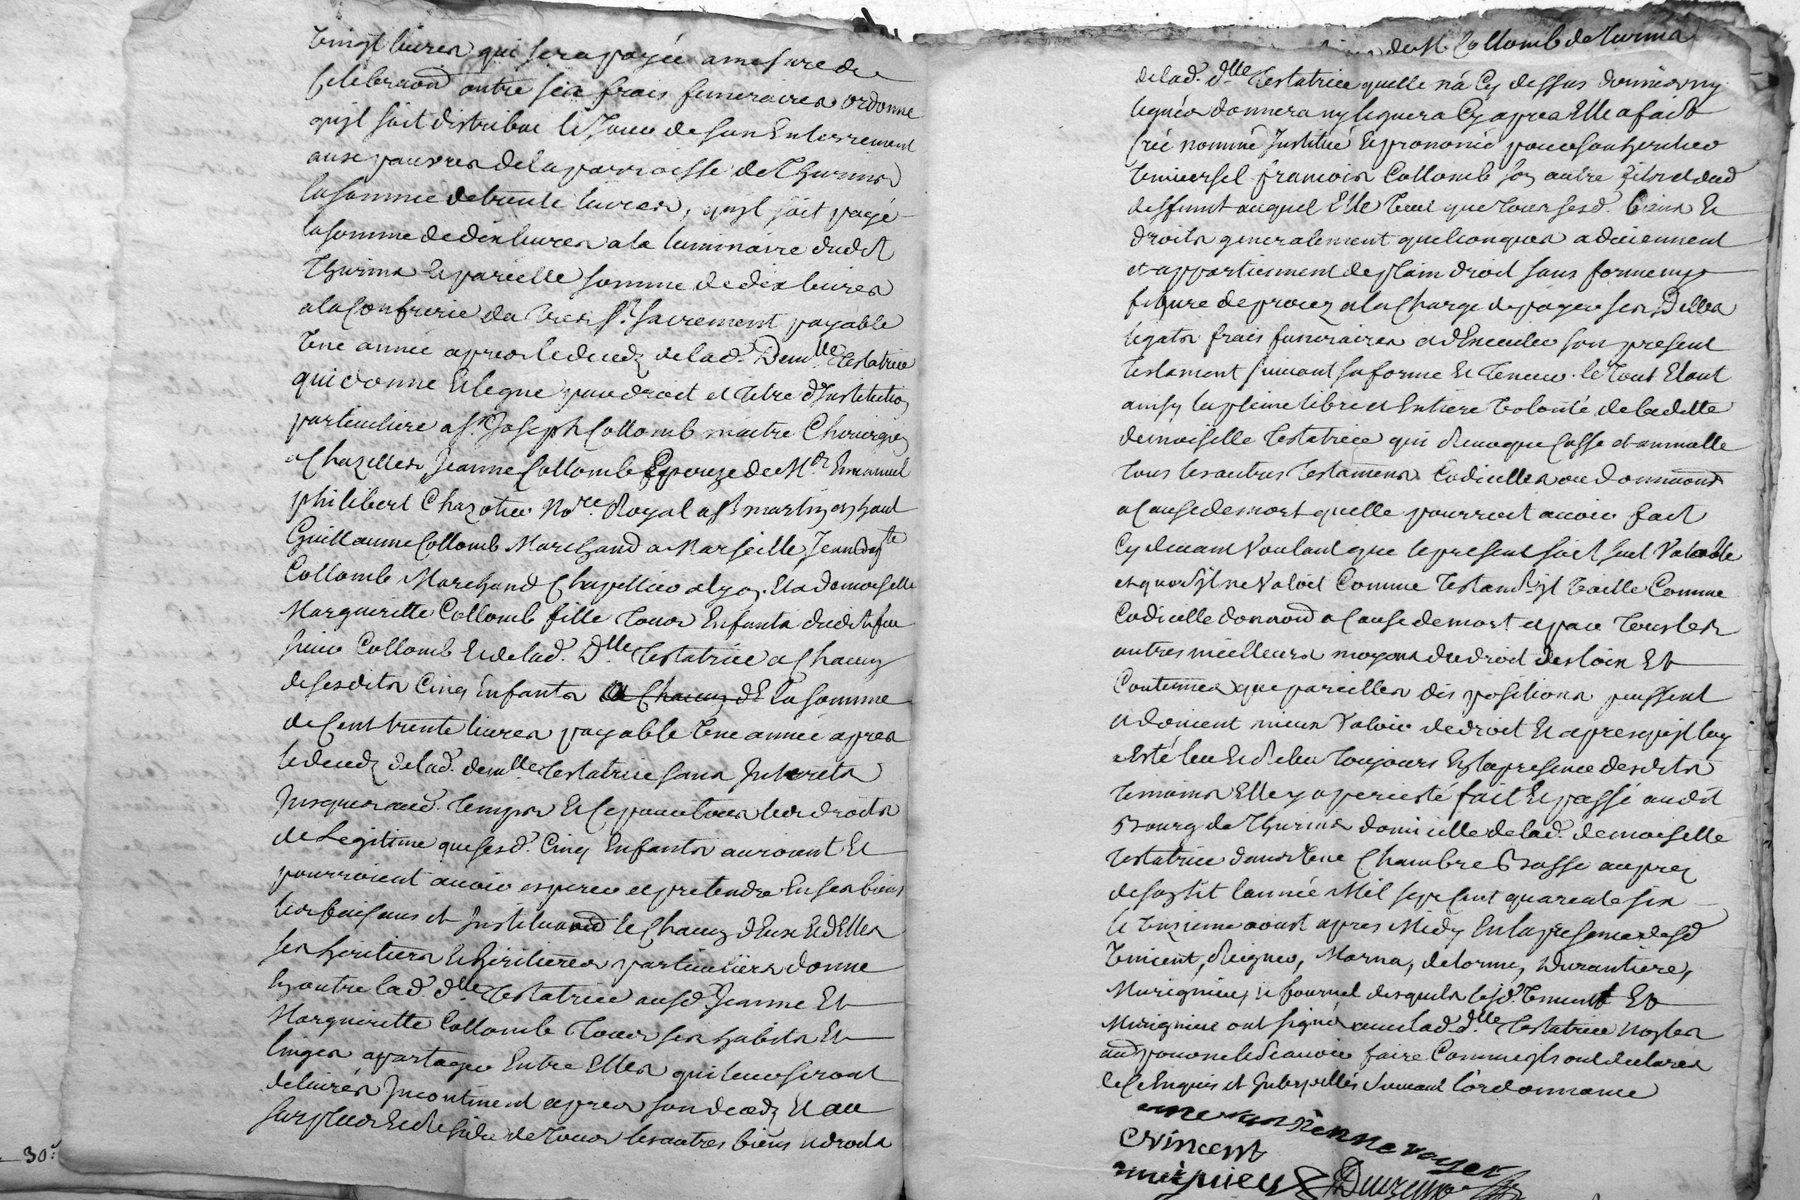 vingt livres qui sera payée a mesure de
celebraon outre ses frais funeraires ordonne
quil soit distribué le Jour de son Enterrement
aux pauvres de la parroisse de Thurins
la somme de trente livres, quil soit payé
la somme de dix livres a la luminaire dudit
Thurins et pareille somme de dix livres
a la Confrerie du tres St. Sacrement payable
une année apres le decedz de lad. Demlle Testatrice
qui donne et legue par droit et titre d'Institution
particuliere a Sr. Joseph Collomb maitre Chirurgien
a Chazelles Jeanne Collomb Epouze de Mr. Emanuel
philibert Chazotier Nore Royal a St martin en haut
Guillaume Collomb Marchand a Marseille Jean Bapte
Collomb Marchand Chapellier a Lyon. Et a demoiselle
Margueritte Collomb fille tous Enfants dudit feu
sieur Collomb et de lad. Dlle Testatrice a Chacun
de sesdits Cinq Enfants a Chacun de la somme
de Cent trente livres payable une année apres
le decedz de lad. demlle Testatrice sans Interets
Jusques aud. temps et Ce pour tous les droits
de Legitime que sesd. Cinq Enfants auroient Et
pourroient avoir esperer et pretendre En ses biens
les faisant et Instituand le Chacun d'Eux et d'Elles
ses heritiers et heritieres particuliers donne
En outre lad. dlle Testatrice ausd. Jeanne Et
Marguerite Collomb tous ses habits Et
linges a partager Entre Elles qui leur seront
delivrés Incontinent apres son decedz Et au
surplus et residu de tous les autres biens et droits
30.
de St Collomb de Turins
de lad. dlle Testatrice quelle n'a Cy dessus donnés ny
legués donnera ny leguera Cy apres Elle a fait
Créé nommé Institué et prononcé pour son heritier
universel francois Collomb son autre fils et dud
deffunt auquel Elle veut que tous sesd. biens Et
droits generalement quelconques adviennent
et appartiennent de plain droit sans forme ny
figure de procez a la Charge de payer ses Dettes
legats frais funeraires et d'Executer son present
testament suivant sa forme et teneur. le tout Etant
ainsy la pleine libre et Entiere volonté de ladite
demoiselle Testatrice qui revoque Casse et annulle
tous les autres testaments Codicilles ou donnaons
a Cause de mort quelle pourroit avoir fait
Cy devant voulant que le present soit seul valable
et que s'il ne valoit Comme testamt. il vaille Comme
Codicille donnaon a Cause de mort et par tous les
autres meilleurs moyens de droit des loix Et
Coutumes que pareilles dispositions peuvent
et doivent mieux valoir de droit Et apres quil luy
a Esté leu et releu toujours En la presence desdits
temoins Elle y a percisté fait et passé audit
Bourg de Thurins domicille de lad. demoiselle
testatrice dans une Chambre Basse au prez
de son lit l'année Mil sept Cent quarente six
le unzieme aoust apres Midy En la presence desd
Vincent, Reigner, Marna, delorme, Durantiere,
Murignieu, et fournel desquels lesd. Vincent Et
Murignieu ont signé avec lad. dlle Testatrice non les
autres pour ne le scavoir faire Comme ils ont declarés
de Ce Enquis et Interpellés suivant l'ordonnance
C Vincent
murigneu